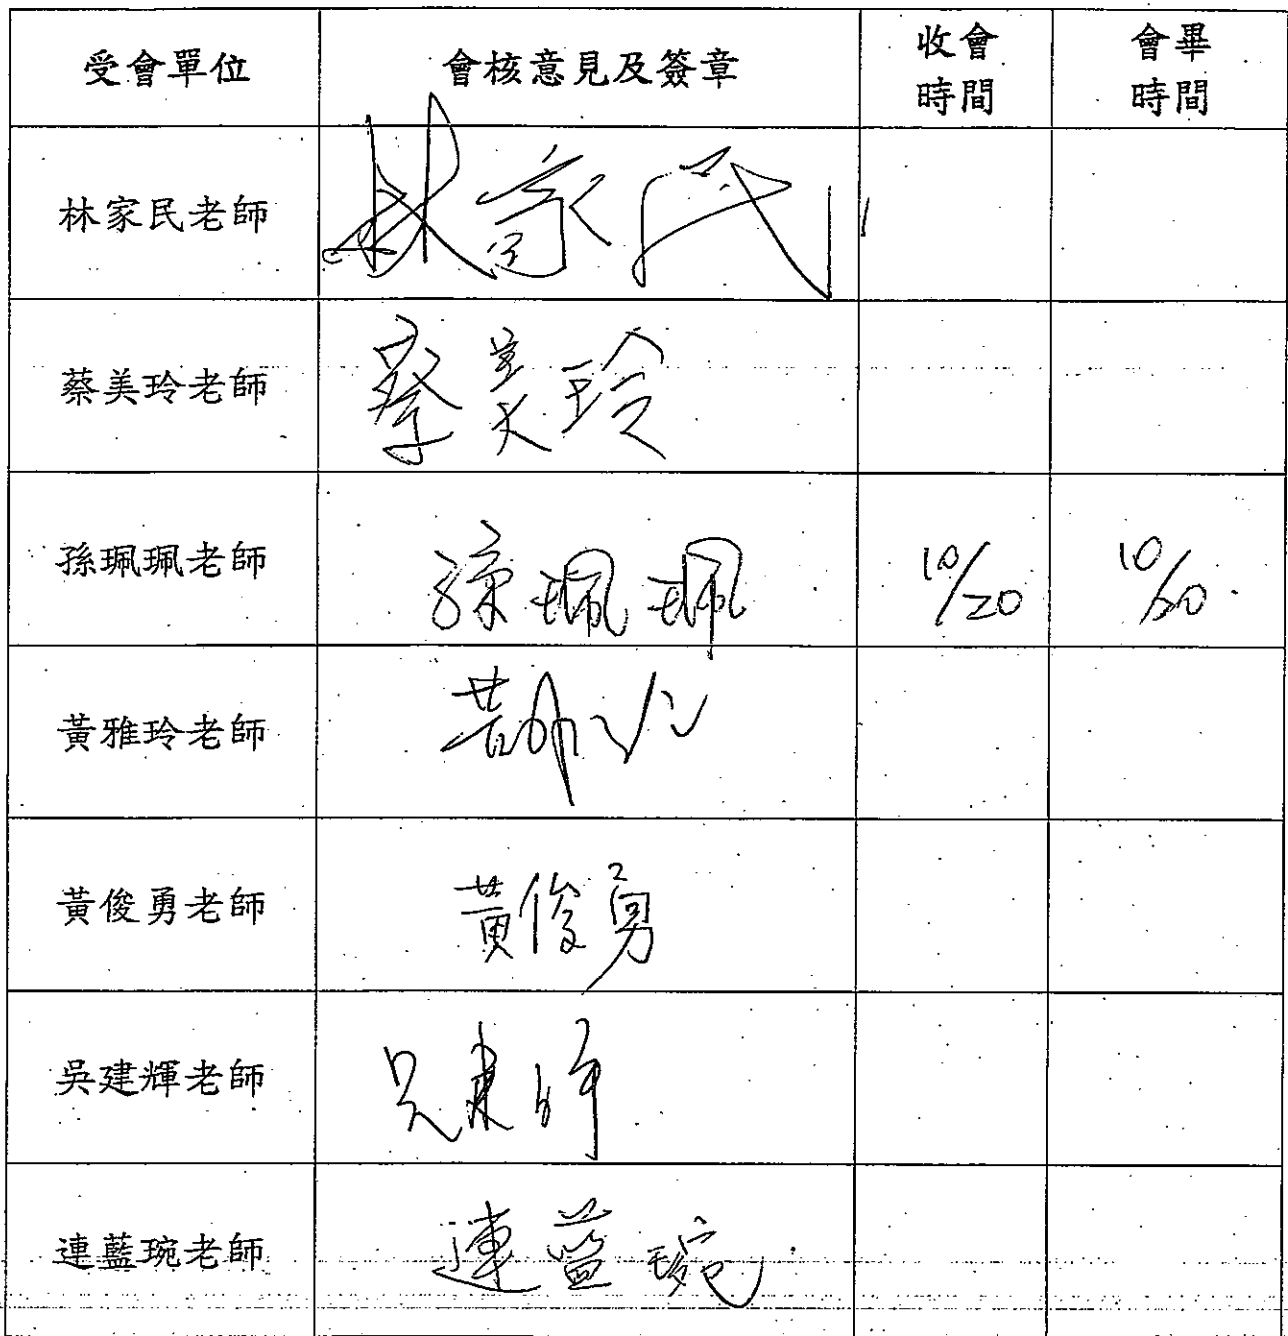 受會單位 會核意見及簽章 收會時間 會畢時間
林家民老師 林家民
蔡美玲老師 蔡美玲
孫珮珮老師 孫珮珮 10/20 10/20
黃雅玲老師
黃俊勇老師 黃俊勇
吳建輝老師
連藍琬老師 連藍琬